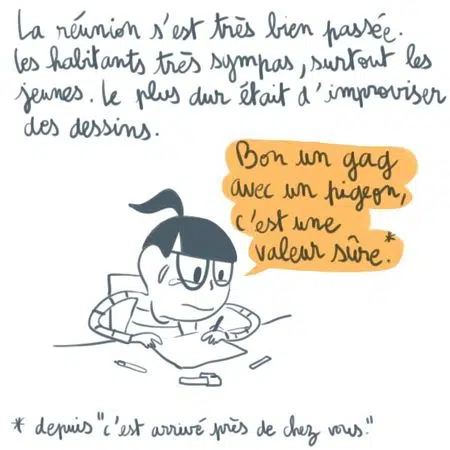 La réunion s'est très bien passée.
Les habitants très sympas, surtout les
jeunes. Le plus dur était d'improviser
des dessins.
Bon un gag
avec un pigeon,
c'est une
valeur sûre.*
* depuis "c'est arrivé près de chez vous."